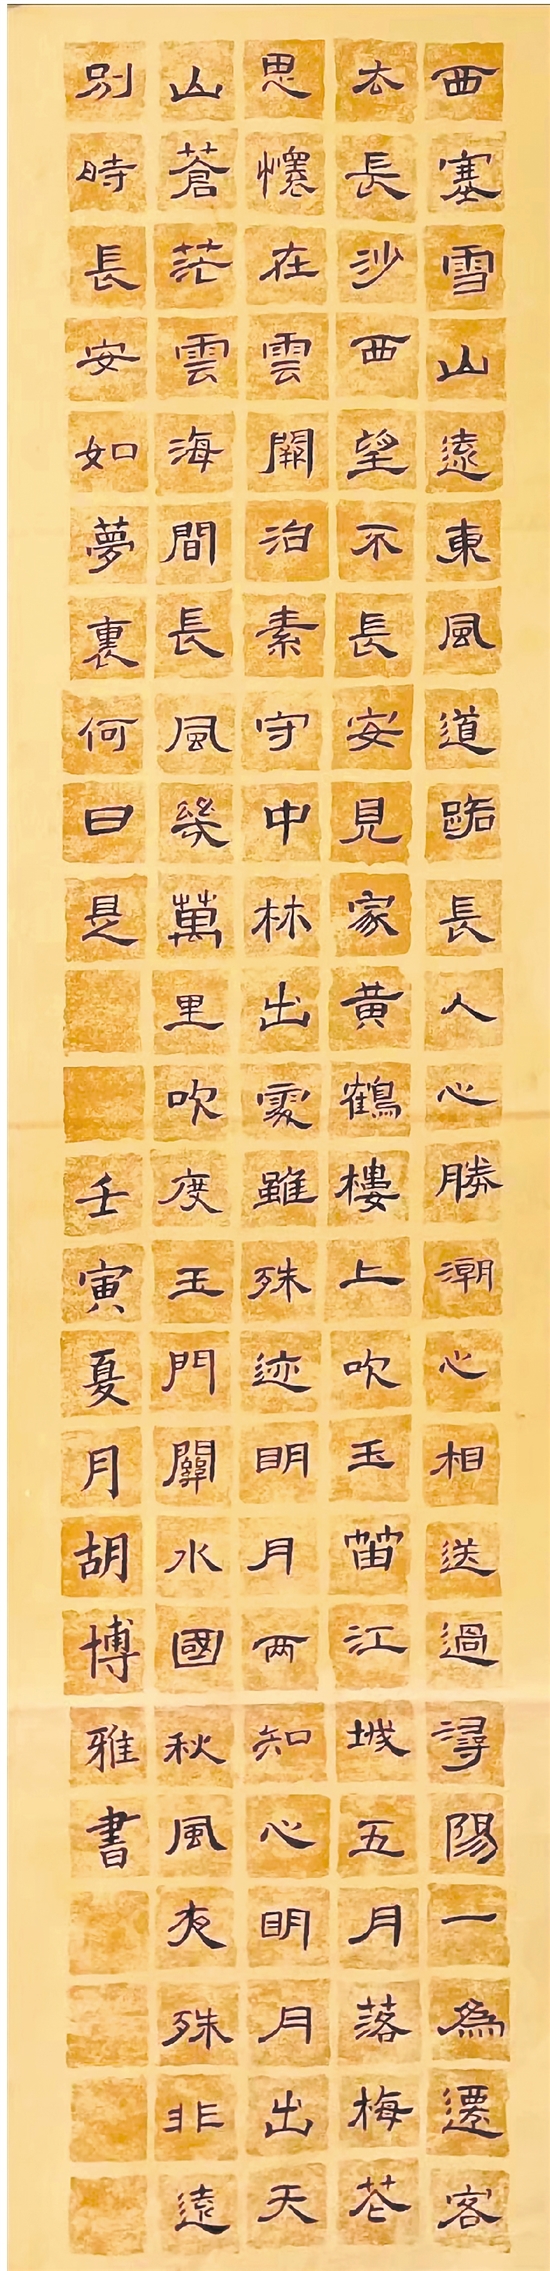 西塞雪山遠東風道路長人心勝潮心相送過潯陽一為遷客
去長沙西望不長安見家黃鶴樓上吹玉笛江城五月落梅花
思懷在雲闕泊素守中林出處雖殊迹明月两知心明月出天
山蒼茫雲海間長風幾萬里吹度玉門關水國秋風夜殊非遠
別時長安如夢裏何日是
壬寅夏月胡博雅書